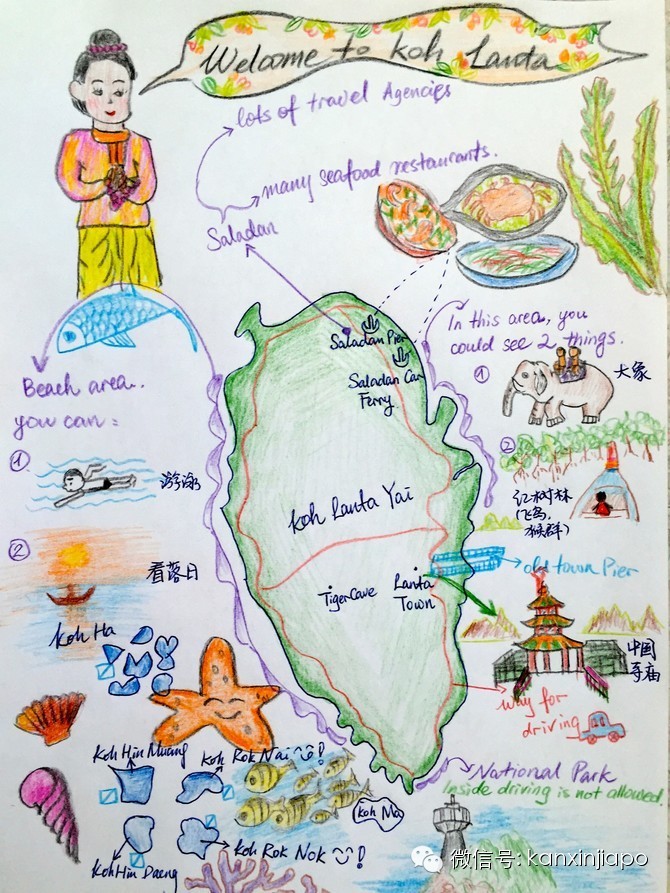 Welcome to Koh Lanta
lots of travel Agencies
many seafood restaurants.
Saladan
In this area, you
could see 2 things.
①
大象
②
红树林
(飞鸟,
猴群)
Saladan Pier
Saladan Car
Ferry
Beach area.
you can:
①
游泳
②
看落日
Koh Lanta Yai
TigerCave
Lanta
Town
old town Pier
中国
寺庙
way for
driving
Koh Ha
Koh Hin Muang
Koh Rok Nai !
Koh Ma
Koh Rok Nok !
Koh Hin Daeng
National Park
Inside driving is not allowed
微信号: kanxinjiapo